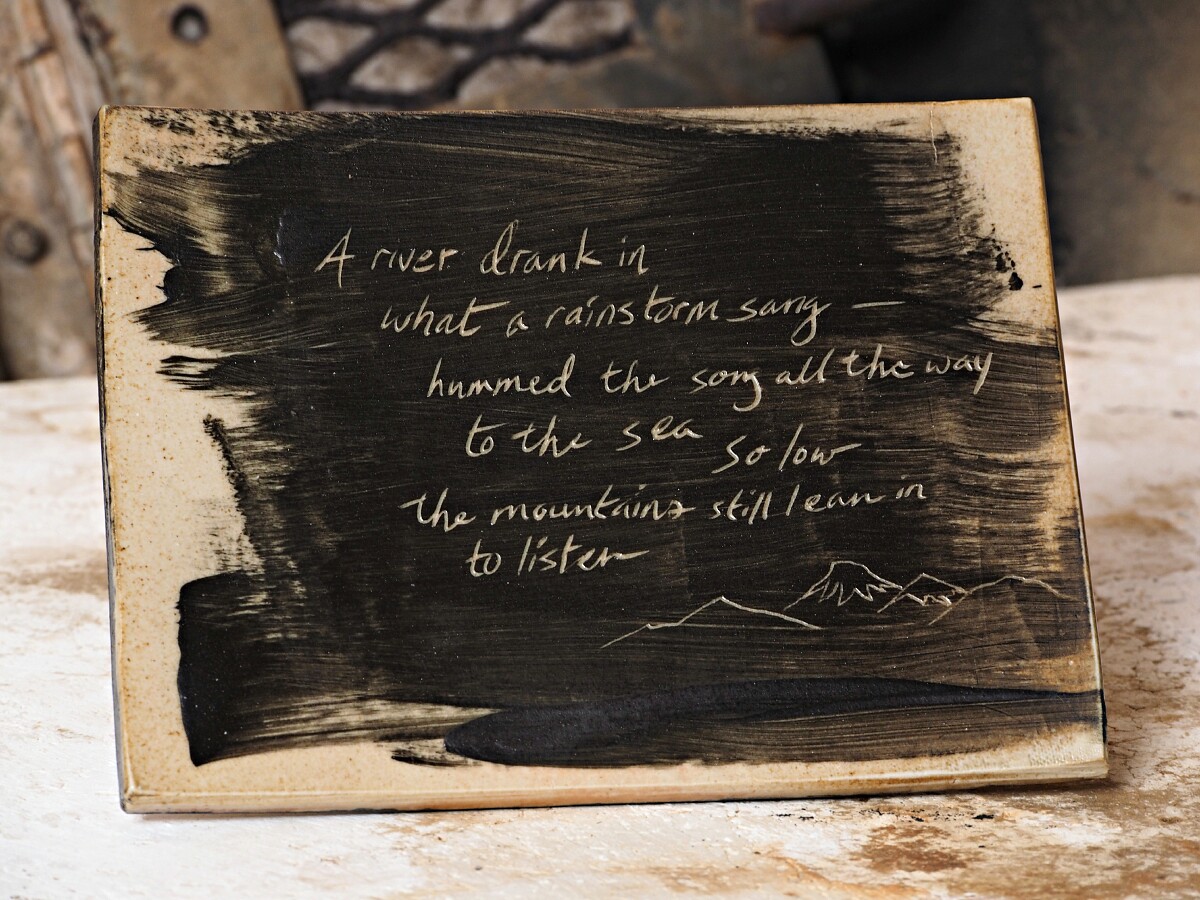 A river drank in
what a rainstorm sang —
hummed the song all the way
to the sea
so low
the mountains still lean in
to listen